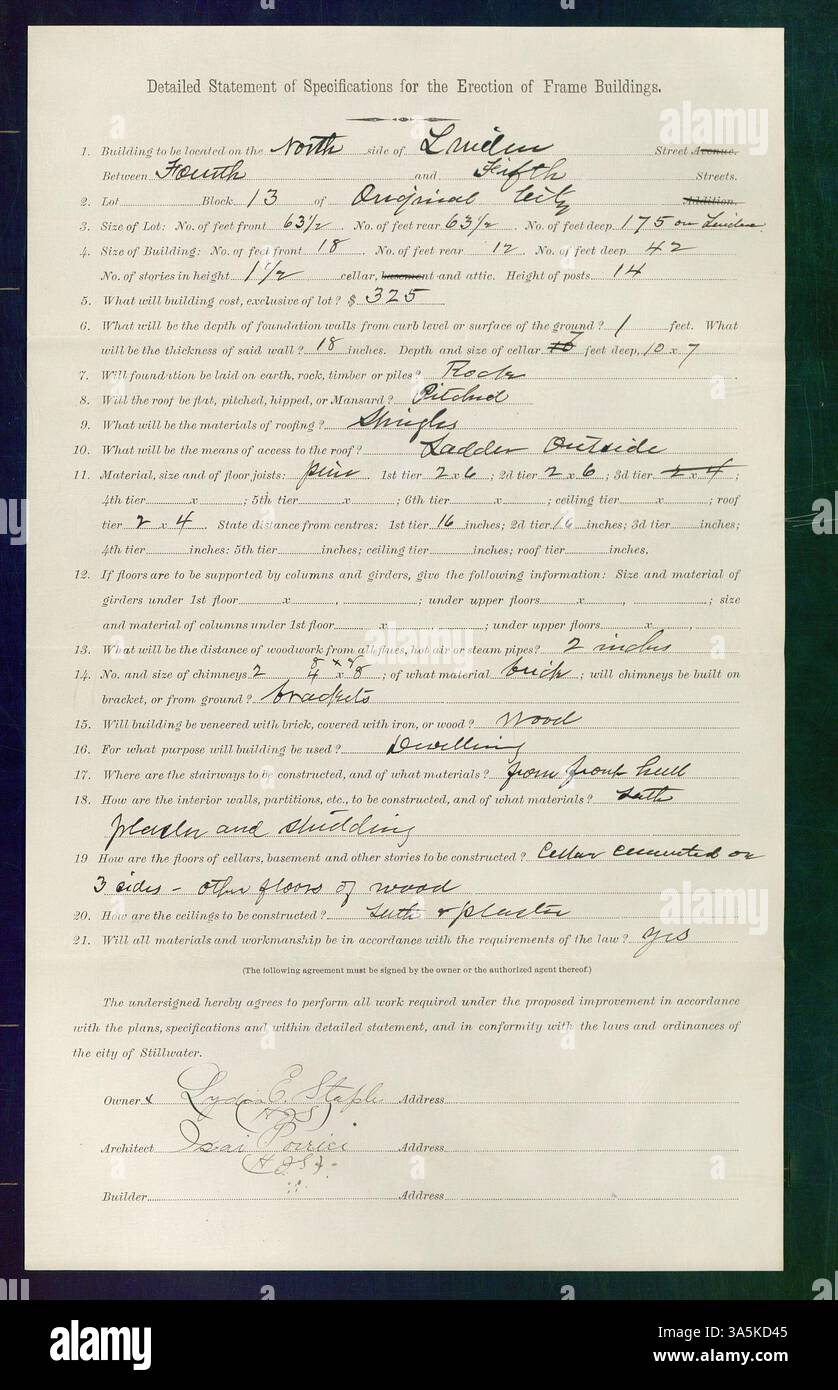 Detailed Statement of Specifications for the Erection of Frame Buildings.
1. Building to be located on the North side of Linden Street Avenue.
Between Fourth and Fifth Streets.
2. Lot Block 13 of Original City Addition.
3. Size of Lot: No. of feet front 63 1/2 . No. of feet rear 63 1/2 . No. of feet deep, 175 on Linden
4. Size of Building: No. of feet front 18 . No. of feet rear 12 . No. of feet deep 42
No. of stories in height 1 1/2 cellar, basement and attic. Height of posts 14
5. What will building cost, exclusive of lot? $ 325
6. What will be the depth of foundation walls from curb level or surface of the ground? 1 feet. What
will be the thickness of said wall? 18 inches. Depth and size of cellar 7 feet deep, 10 x 7
7. Will foundation be laid on earth, rock, timber or piles? Rock
8. Will the roof be flat, pitched, hipped, or Mansard? Pitched
9. What will be the materials of roofing? Shingles
10. What will be the means of access to the roof? Ladder Outside
11. Material, size and of floor joists: pine 1st tier 2 x 6 ; 2d tier 2 x 6 ; 3d tier 2 x 4 ;
4th tier x ; 5th tier x ; 6th tier x ; ceiling tier x ; roof
tier 2 x 4 . State distance from centres: 1st tier 16 inches; 2d tier 16 inches; 3d tier inches;
4th tier inches: 5th tier inches; ceiling tier inches; roof tier inches.
12. If floors are to be supported by columns and girders, give the following information: Size and material of
girders under 1st floor x , ; under upper floors x , ; size
and material of columns under 1st floor x , ; under upper floors x ,
13. What will be the distance of woodwork from all flues, hot air or steam pipes? 2 inches
8 x 8
14. No. and size of chimneys 2 4 x 8 ; of what material brick ; will chimneys be built on
bracket, or from ground? brackets
15. Will building be veneered with brick, covered with iron, or wood? Wood
16. For what purpose will building be used? Dwelling
17. Where are the stairways to be constructed, and of what materials? from front hall
18. How are the interior walls, partitions, etc., to be constructed, and of what materials? Lath
plaster and studding
19 How are the floors of cellars, basement and other stories to be constructed? Cellar cemented on
3 sides - other floors of wood
20. How are the ceilings to be constructed? Lath & plaster
21. Will all materials and workmanship be in accordance with the requirements of the law? yes
(The following agreement must be signed by the owner or the authorized agent thereof.)
The undersigned hereby agrees to perform all work required under the proposed improvement in accordance
with the plans, specifications and within detailed statement, and in conformity with the laws and ordinances of
the city of Stillwater.
Owner x Lydia E. Staples Address
Architect Address
Builder Address
alamy
Image ID: 3A5KD45
www.alamy.com